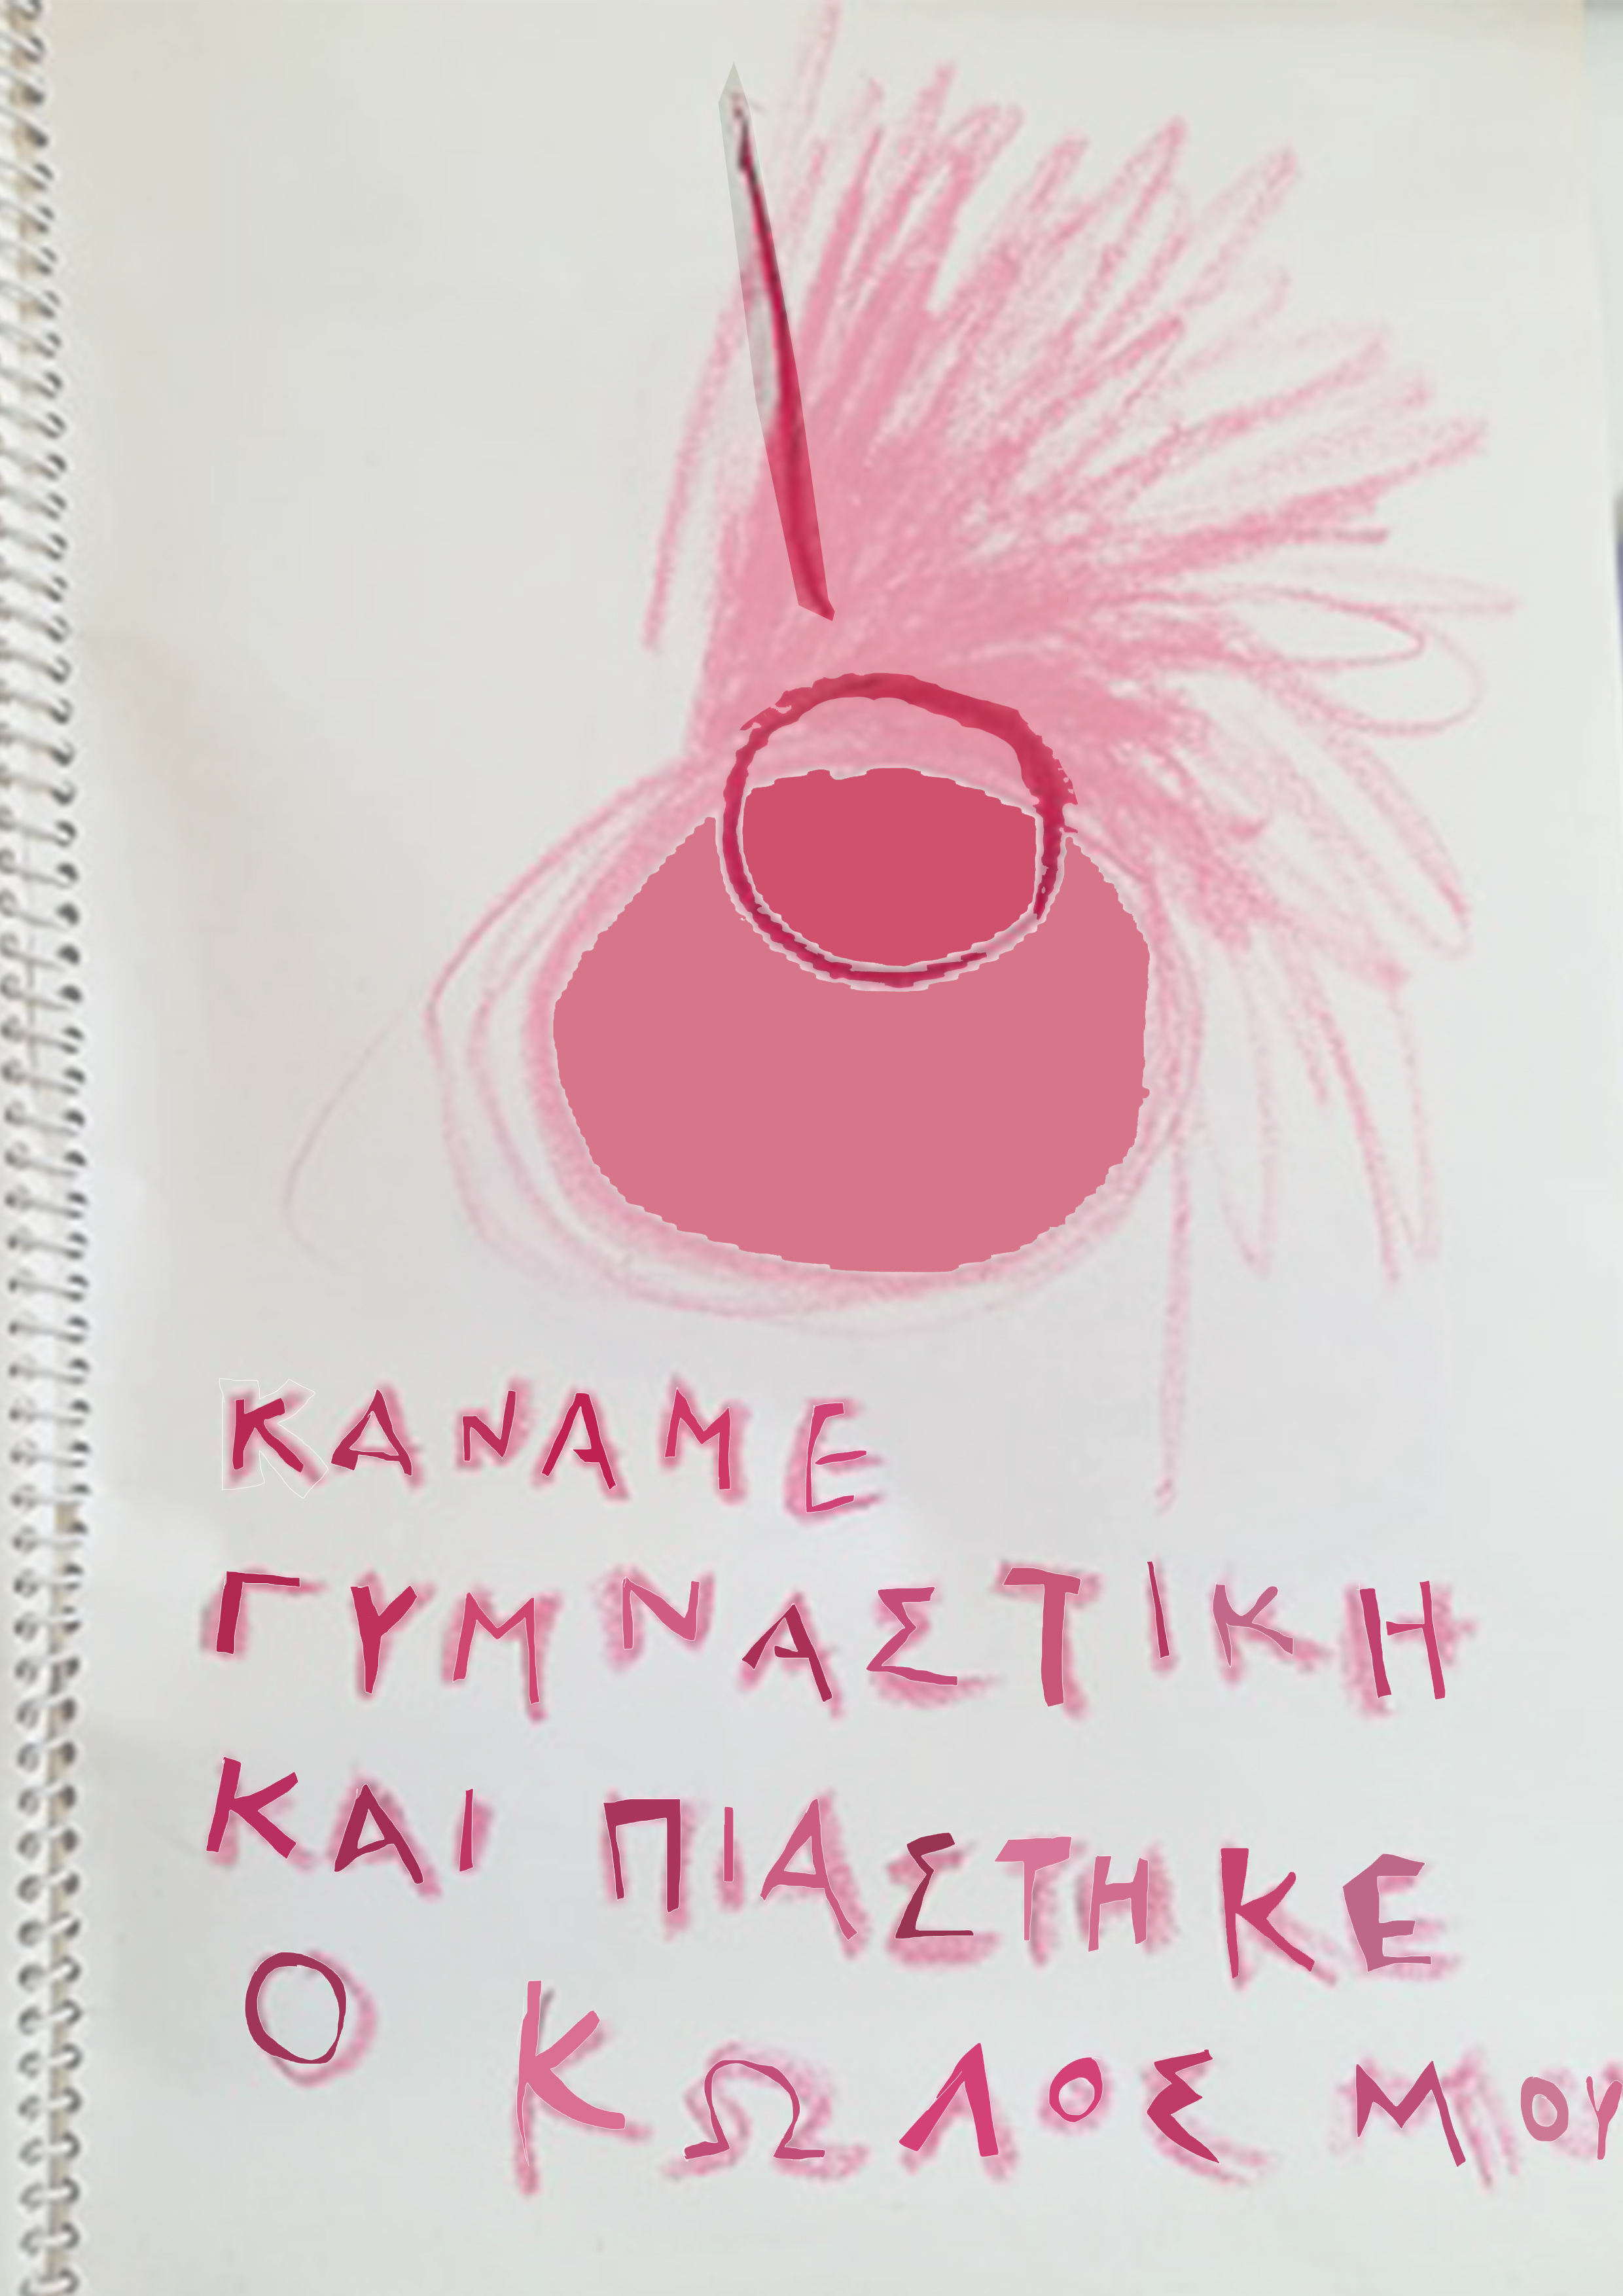 ΚΑΝΑΜΕ
ΓΥΜΝΑΣΤΙΚΗ
ΚΑΙ ΠΙΑΣΤΗΚΕ
Ο ΚΩΛΟΣ ΜΟΥ